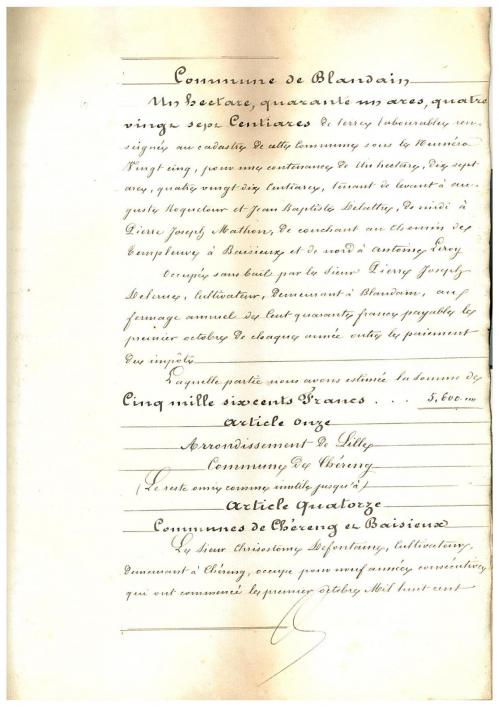 Commune de Blandain
Un hectare, quarante un ares, quatre
vingt sept Centiares de terres labourables ren-
seignée au cadastre de cette Commune sous le Numéro
Vingt cinq, pour une contenance de Un hectare, dix sept
ares, quatre vingt dix Centiares, tenant de levant à au-
guste Roquetour et Jean Baptiste Delattre, de midi à
Pierre Joseph Mathon, de couchant au Chemin de
Templeuve à Baisieux et de nord à Antoine Leroy
Occupée sans bail par le sieur Pierre Joseph
Delerue, Cultivateur, demeurant à Blandain, au
fermage annuel de Cent quarante francs payable le
premier octobre de chaque année outre le paiement
des impôts
Laquelle partie nous avons estimée la somme de
Cinq mille sixcents Francs . . . 5,600
Article onze
Arrondissement de Lille
Commune de Chéreng
(Le reste omis comme inutile jusqu'à)
Article Quatorze
Communes de Chéreng et Baisieux
Le Sieur Chrisostome Defontaine, Cultivateur,
demeurant à Chéreng, occupe pour neuf années consécutives
qui ont commencé le premier octobre Mil huit cent